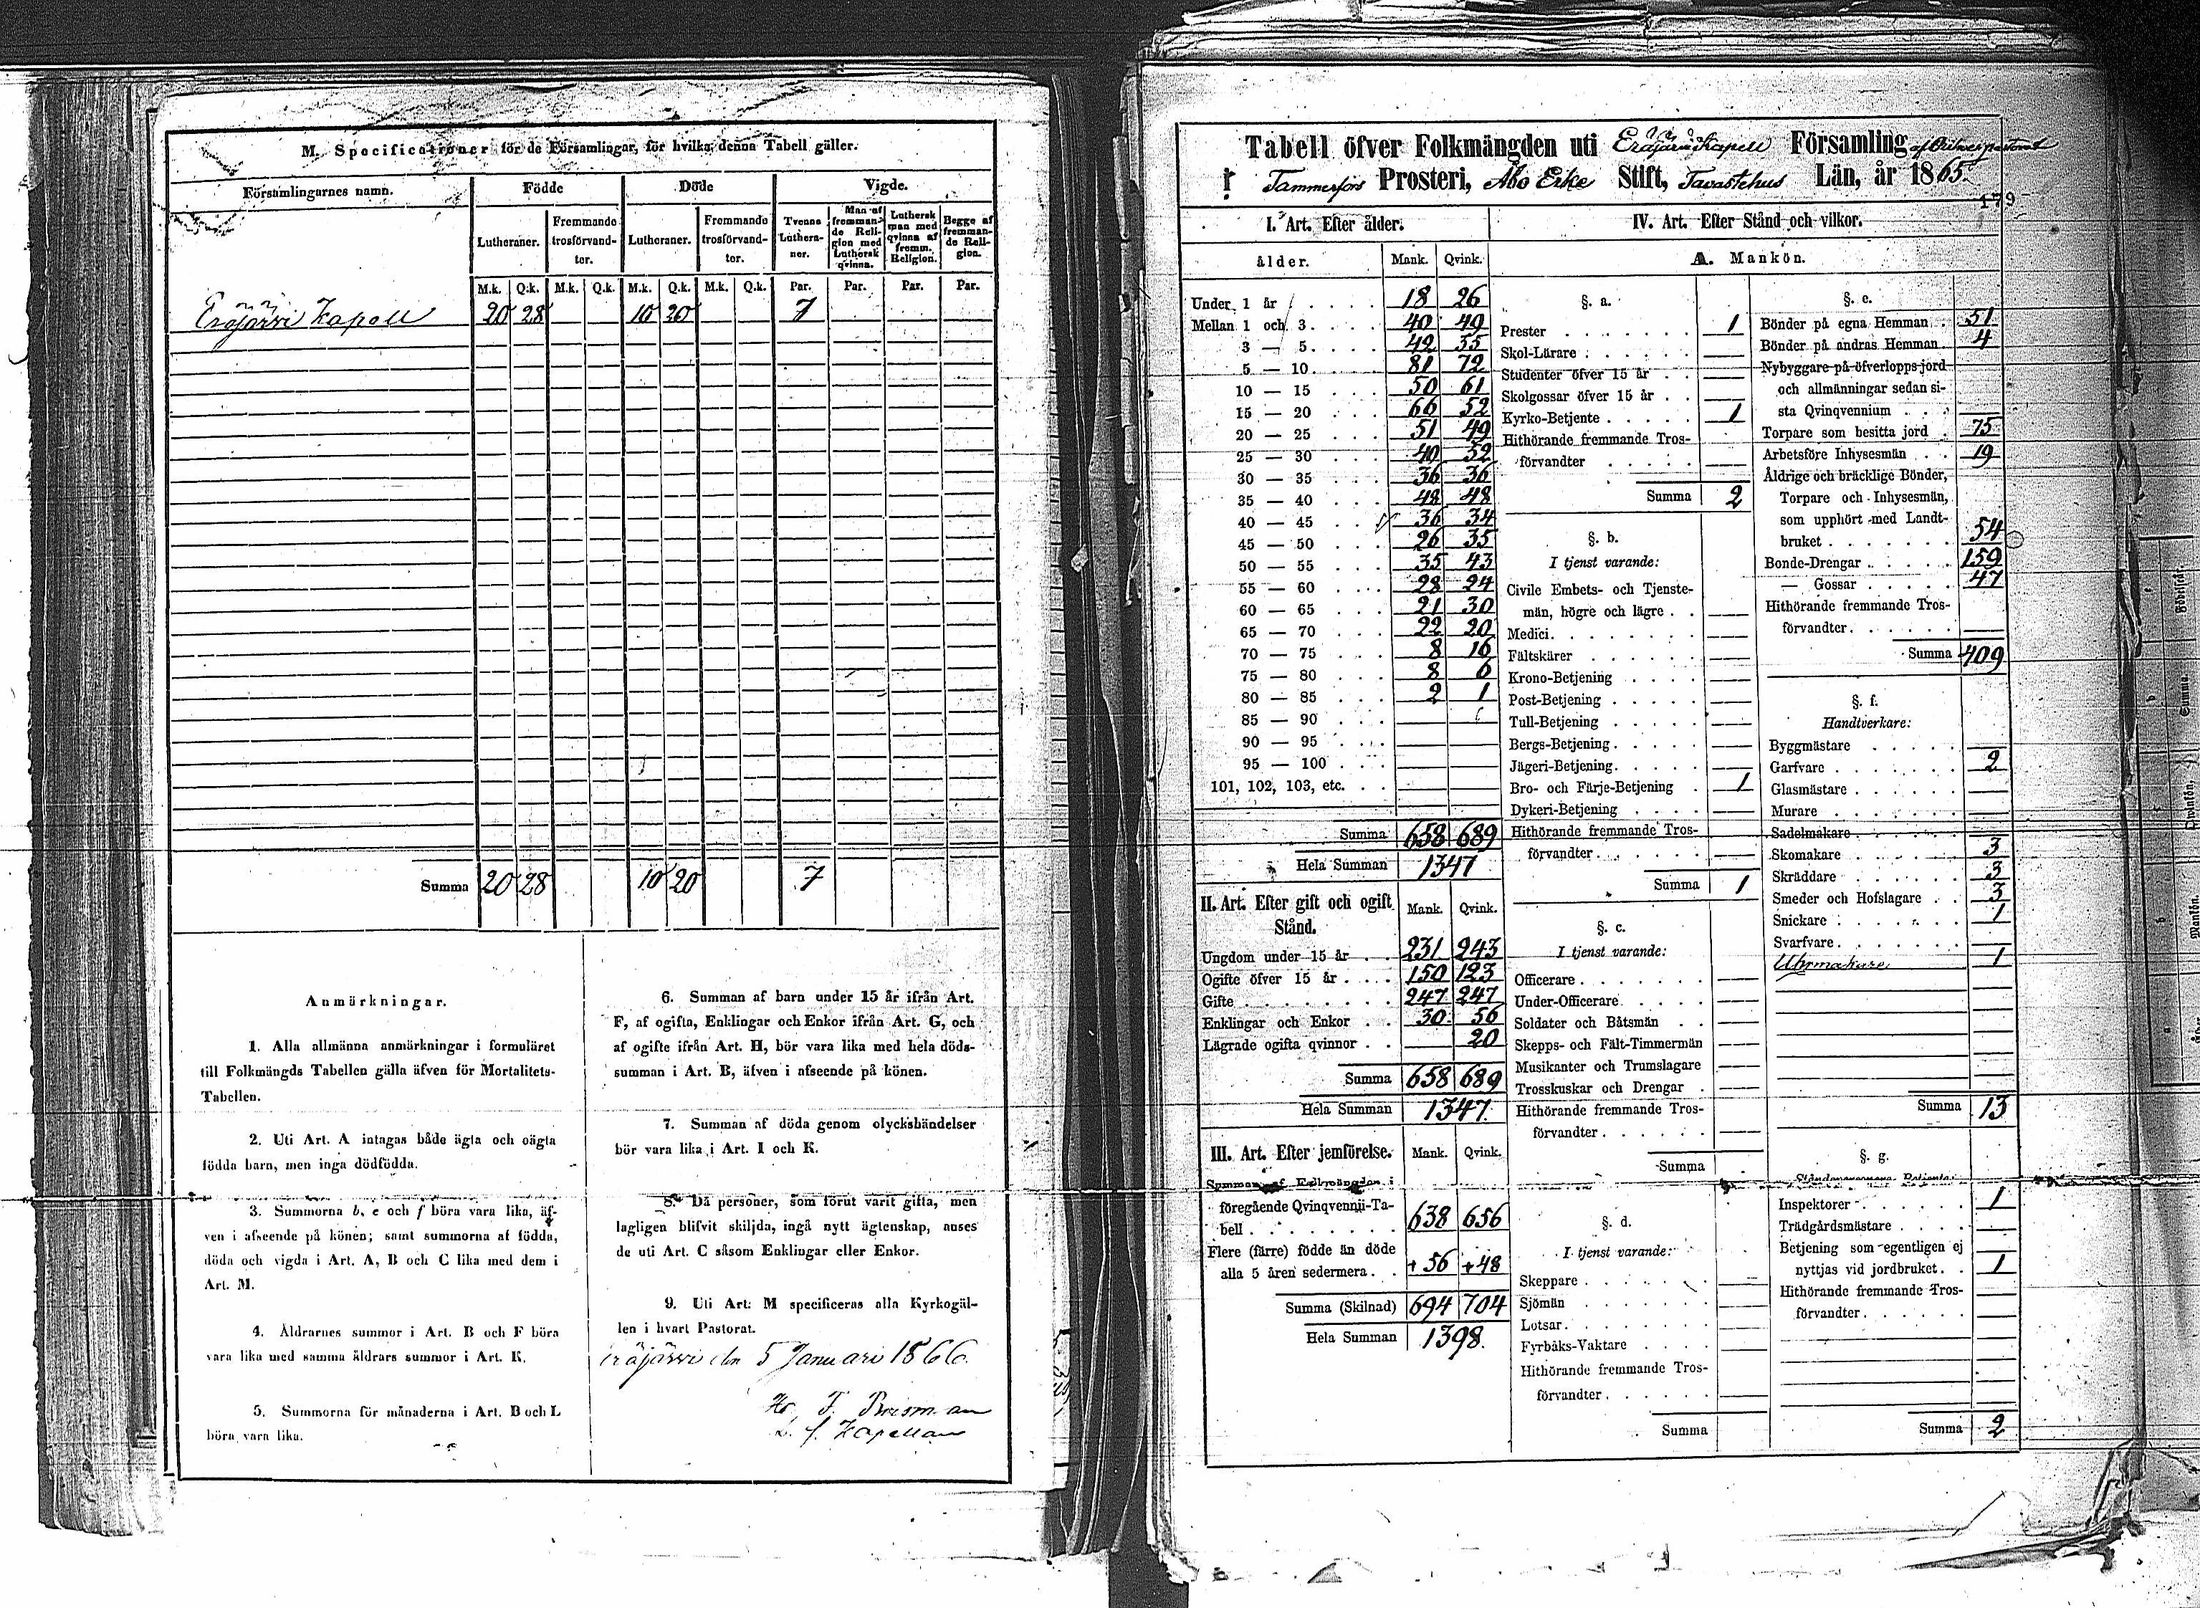 M. Specificationer för de Församlingar, för hvilka denna Tabell gäller.
Församlingarnes namn. Födde Döde Vigde.
Lutheraner. Fremmande trosförvandter. Lutheraner. Fremmande trosförvandter. Tvenne Lutheraner. Man af fremmande Religion med Luthersk qvinna. Luthersk man med qvinna af fremm. Religion. Begge af fremmande Religion.
M.k. Q.k. M.k. Q.k. M.k. Q.k. M.k. Q.k. Par. Par. Par. Par.
Eräjärvi Kapell 20 28 10 20 7
Summa 20 28 10 20 7
Anmärkningar.
1. Alla allmänna anmärkningar i formuläret
till Folkmängds Tabellen gälla äfven för Mortalitets-
Tabellen.
2. Uti Art. A intagas både ägta och oägta
födda barn, men inga dödfödda.
3. Summorna b, e och f böra vara lika, äf-
ven i afseende på könen; samt summorna af födda,
döda och vigda i Art. A, B och C lika med dem i
Art. M.
4. Åldrarnes summor i Art. B och F böra
vara lika med samma åldrars summor i Art. K.
5. Summorna för månaderna i Art. B och L
böra vara lika.
6. Summan af barn under 15 år ifrån Art.
F, af ogifta, Enklingar och Enkor ifrån Art. G, och
af ogifte ifrån Art. H, bör vara lika med hela döds-
summan i Art. B, äfven i afseende på könen.
7. Summan af döda genom olyckshändelser
bör vara lika i Art. I och K.
8. Då personer, som förut varit gifta, men
lagligen blifvit skiljda, ingå nytt ägtenskap, anses
de uti Art. C såsom Enklingar eller Enkor.
9. Uti Art. M specificeras alla Kyrkogäl-
len i hvart Pastorat.
Eräjärvi den 5 Januari 1866.
F. Brisman
Kapellan
Tabell öfver Folkmängden uti Eräjärvi Kapell Församling af Orivesi pastorat
Tammerfors Prosteri, Åbo Erke Stift, Tavastehus Län, år 1865.
179
I. Art. Efter ålder.
ålder. Mank. Qvink.
Under 1 år 18 26
Mellan 1 och 3 40 49
3 — 5 42 35
5 — 10 81 72
10 — 15 50 61
15 — 20 66 52
20 — 25 51 49
25 — 30 40 52
30 — 35 36 36
35 — 40 48 48
40 — 45 36 34
45 — 50 26 35
50 — 55 35 43
55 — 60 28 24
60 — 65 21 30
65 — 70 22 20
70 — 75 8 16
75 — 80 8 6
80 — 85 2 1
85 — 90
90 — 95
95 — 100
101, 102, 103, etc.
Summa 658 689
Hela Summan 1347
II. Art. Efter gift och ogift Stånd. Mank. Qvink.
Ungdom under 15 år 231 243
Ogifte öfver 15 år 150 123
Gifte 247 247
Enklingar och Enkor 30 56
Lägrade ogifta qvinnor 20
Summa 658 689
Hela Summan 1347.
III. Art. Efter jemförelse. Mank. Qvink.
Summan af Folkmängden i
föregående Qvinqvennii-Ta-
bell 638 656
Flere (färre) födde än döde
alla 5 åren sedermera + 56 + 48
Summa (Skilnad) 694 704
Hela Summan 1398.
IV. Art. Efter Stånd och vilkor.
A. Mankön.
§. a.
Prester 1
Skol-Lärare
Studenter öfver 15 år
Skolgossar öfver 15 år
Kyrko-Betjente 1
Hithörande fremmande Tros-
förvandter
Summa 2
§. b.
I tjenst varande:
Civile Embets- och Tjenste-
män, högre och lägre
Medici
Fältskärer
Krono-Betjening
Post-Betjening
Tull-Betjening
Bergs-Betjening
Jägeri-Betjening
Bro- och Färje-Betjening 1
Dykeri-Betjening
Hithörande fremmande Tros-
förvandter
Summa 1
§. c.
I tjenst varande:
Officerare
Under-Officerare
Soldater och Båtsmän
Skepps- och Fält-Timmermän
Musikanter och Trumslagare
Trosskuskar och Drengar
Hithörande fremmande Tros-
förvandter
Summa
§. d.
I tjenst varande:
Skeppare
Sjömän
Lotsar
Fyrbåks-Vaktare
Hithörande fremmande Tros-
förvandter
Summa
§. e.
Bönder på egna Hemman 51
Bönder på andras Hemman 4
Nybyggare på öfverloppsjord
och allmänningar sedan si-
sta Qvinqvennium
Torpare som besitta jord 75
Arbetsföre Inhysesmän 19
Åldrige och bräcklige Bönder,
Torpare och Inhysesmän,
som upphört med Landt-
bruket 54
Bonde-Drengar 159
— Gossar 47
Hithörande fremmande Tros-
förvandter
Summa 409
§. f.
Handtverkare:
Byggmästare
Garfvare 2
Glasmästare
Murare
Sadelmakare
Skomakare 3
Skräddare 3
Smeder och Hofslagare 3
Snickare 1
Svarfvare
Uhrmakare 1
Summa 13
§. g.
Ståndspersoners Betjente:
Inspektorer 1
Trädgårdsmästare
Betjening som egentligen ej
nyttjas vid jordbruket 1
Hithörande fremmande Tros-
förvandter
Summa 2